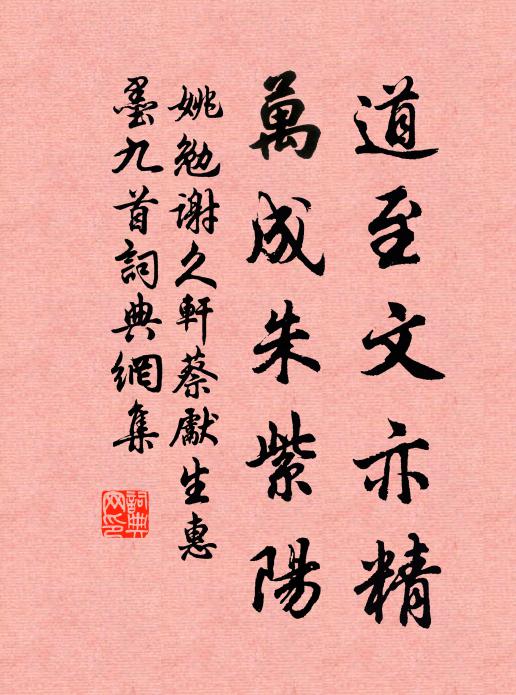 道至文亦精
萬成朱紫陽
姚勉謝久軒蔡獻生惠
墨九首詞典網集
詞典網印